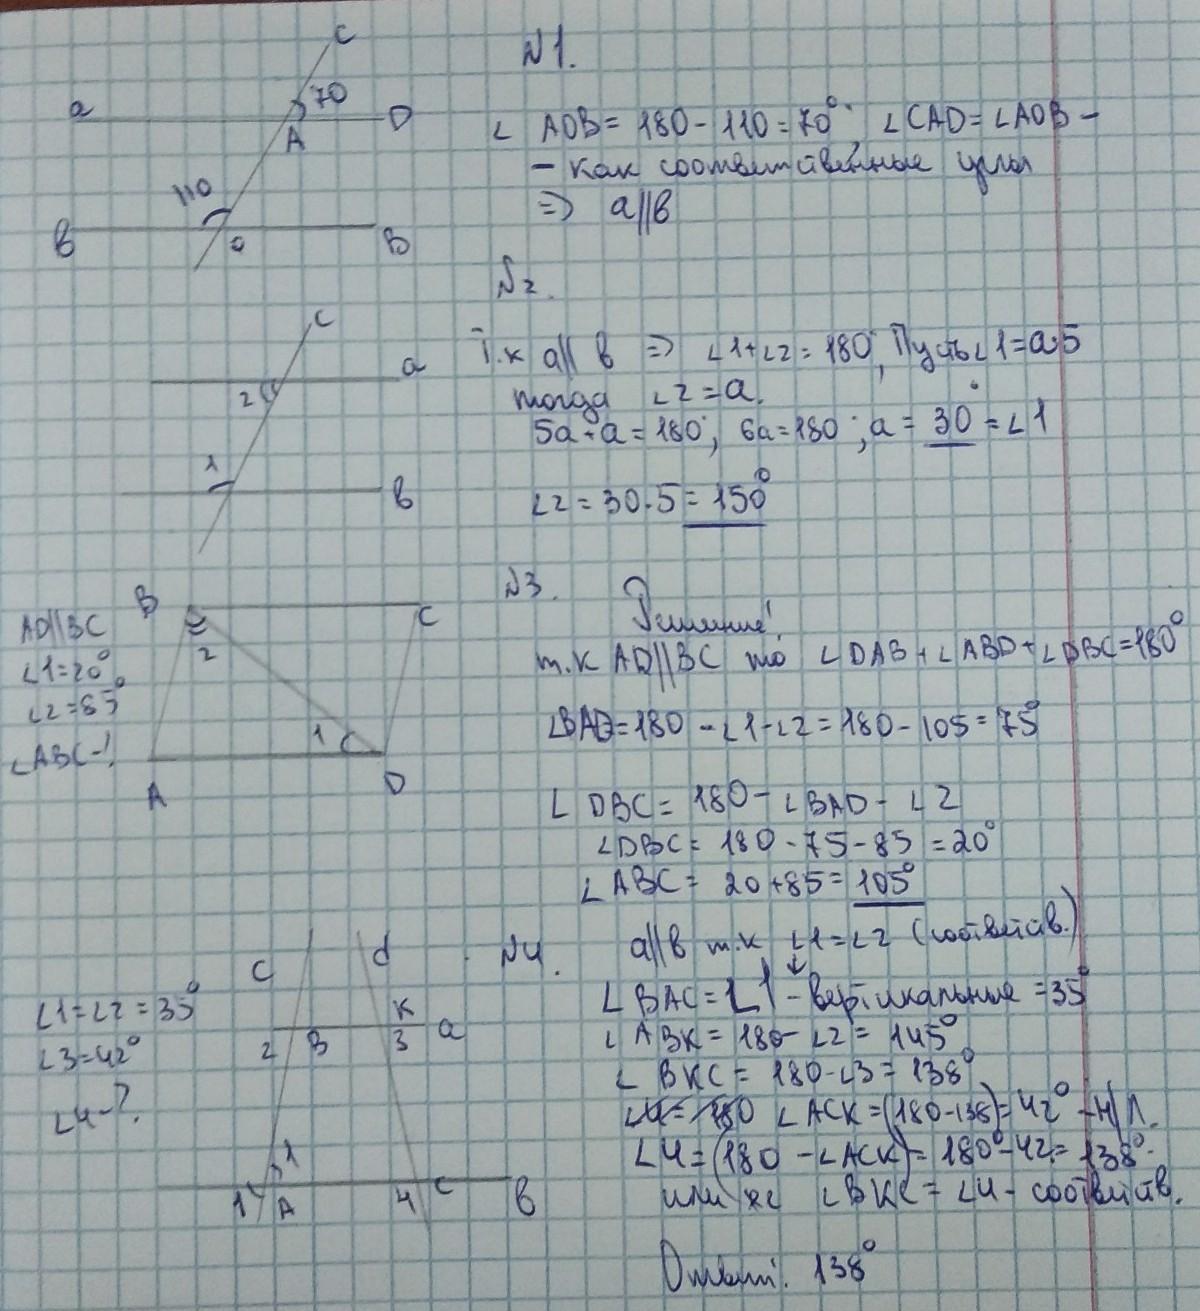 N1.
C
70
a
D
A
110
в
о
В
∠ AOB = 180 - 110 = 70°; ∠CAD = ∠AOB -
- как соответственные углы
=> a||в
N2.
C
a
2
1
в
Т.к a||в => ∠1+∠2 = 180°, Пусть ∠1 = a·5
тогда ∠2 = a.
5a+a = 180°; 6a = 180°; a = 30° = ∠1
∠2 = 30·5 = 150°
N3.
B
C
2
1
A
D
AD||BC
∠1=20°
∠2=85°
∠ABC-?
Решение:
т.к AD||BC то ∠DAB + ∠ABD + ∠DBC = 180°
∠BAD = 180 - ∠1 - ∠2 = 180 - 105 = 75°
∠ DBC = 180 - ∠BAD - ∠2
∠DBC = 180 - 75 - 85 = 20°
∠ ABC = 20 + 85 = 105°
N4.
C
d
K
a
2
B
3
1
1
A
4
C
в
∠1=∠2=35°
∠3=42°
∠4-?
a||в т.к ∠1=∠2 (соответств.)
∠ BAC = ∠1 - вертикальные = 35°
∠ ABK = 180 - ∠2 = 145°
∠ BKC = 180 - ∠3 = 138°
∠4 = 180 ∠ACK = (180-138) = 42° - Н/Л.
∠4 = (180 - ∠ACK) = 180° - 42 = 138°.
или же ∠BKC = ∠4 - соответств.
Ответ: 138°